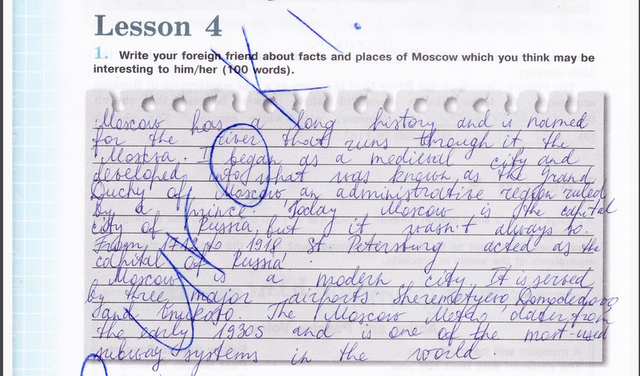 Lesson 4
1. Write your foreign friend about facts and places of Moscow which you think may be
interesting to him/her (100 words).
Moscow has a long history and is named
for the river that runs through it, the
Moskva. I began as a medieval city and
developed into what was known as the Grand
Duchy of Moscow, an administrative region ruled
by a prince. Today Moscow is the capital
city of Russia, but it wasn't always so.
From 1712 to 1918 St. Petersburg acted as the
capital of Russia.
Moscow is a modern city. It is served
by three major airports. Sheremetyevo, Domodedovo
and Vnukovo. The Moscow Metro dates from
the early 1930s and is one of the most-used
subway systems in the world.